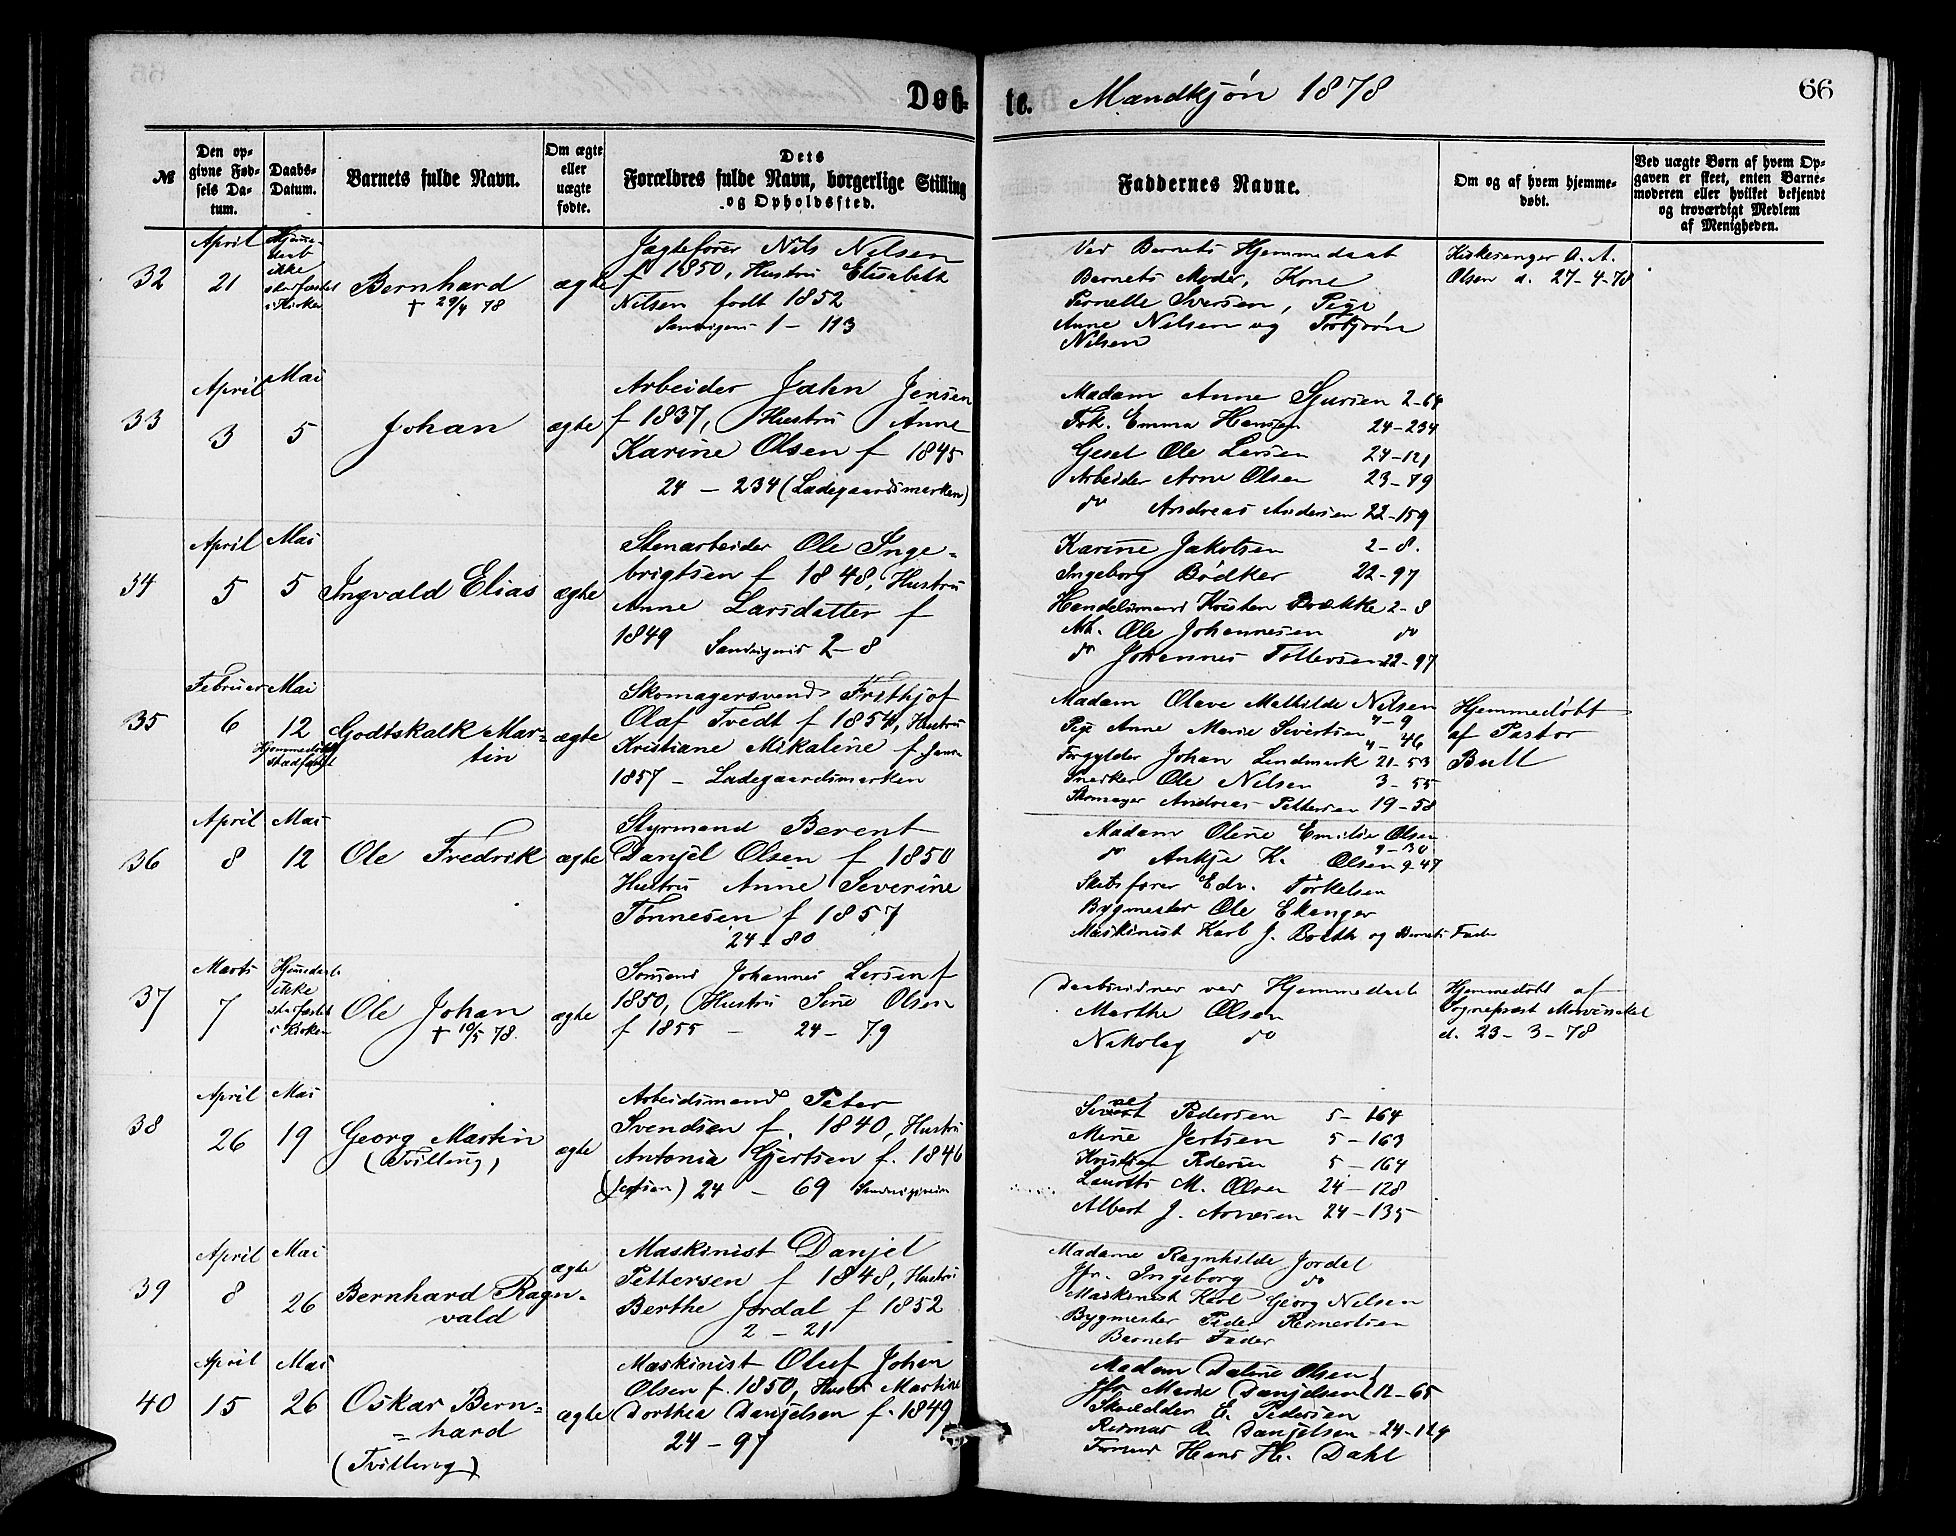 Døb-
te. Mandkjøn 1878
66
№
Den op-
givne Fød-
sels Da-
tum.
Daabs-
Datum.
Barnets fulde Navn.
Om ægte
eller
uægte
fødte.
Dets
Forældres fulde Navn, borgerlige Stilling
og Opholdssted.
Faddernes Navne.
Om og af hvem hjemme-
døbt.
Ved uægte Børn af hvem Op-
gaven er skeet, enten Barne-
moderen eller hvilket bekjendt
og troværdigt Medlem
af Menigheden.
32
April
21
Hjemme-
daab
ikke
stadfæstet
i Kirken
Bernhard
† 29/4 78
ægte
Jægtefører Nils Nilsen
f 1850, Hustru Elisabeth
Nilsen født 1852
Sandvigens 1 - 113
Ved Barnets Hjemmedaab
Barnets Moder, Kone
Pernelle Iversen, Pige
Anne Nilsen og Torbjørn
Nilsen
Kirkesanger O. A.
Olsen d. 27-4-78
33
April
3
Mai
5
Johan
ægte
Arbeider Jahn Jensen
f 1837, Hustru Anne
Karine Olsen f 1845
24 - 234 (Ladegaardsmarken)
Madam Anne Sjursen 2-64
Frk. Emma Hansen 24-234
Gesel Ole Larsen 24-121
Arbeider Arne Olsen 23-79
do Andreas Andersen 22-159
34
April
5
Mai
5
Ingvald Elias
ægte
Stenarbeider Ole Inge-
brigtsen f 1848, Hustru
Anne Larsdatter f
1849 Sandvigens 2-8
Karine Jakobsen 2-8.
Ingeborg Bødker 22-97
Handelsmand Kristen Brække 2-8
Arb. Ole Johannesen do
do Johannes Tollersen 22-97
35
Februar
6
Mai
12
Hjemmedøbt
stadfæstet
Godtskalk Mar-
tin
ægte
Skomagersvend Frithjof
Olaf Tvedt f 1854, Hustru
Kristiane Mikaline f Jansen
1857 - Ladegaardsmarken
Madam Olave Mathilde Nilsen
4-9
Pige Anne Marie Sivertsen
4-46
Forgylder Johan Lindmark 21-53
Snerker Ole Nilsen 3-55
Skomager Andreas Pettersen 19-58
Hjemmedøbt
af Pastor
Bull
36
April
8
Mai
12
Ole Fredrik
ægte
Styrmand Berent
Danjel Olsen f 1850
Hustru Anne Severine
Tønnesen f 1857
24-80
Madam Olene Emilie Olsen
9-30
do Ankje K. Olsen 9-47
Skibsfører Edv. Torkelsen
Bygmester Ole Ekanger
Maskinist Karl J. Booth og Barnets Fader
37
Marts
7
Hjemmedaab
ikke
stadfæstet
i Kirken
Ole Johan
† 10/5 78.
ægte
Sømand Johannes Larsen f
1850, Hustru Sine Olsen
f 1855 - 24 - 79
Daabsvidner ved Hjemmedaab
Marthe Olsen
Nikolay do
Hjemmedøbt af
Sognepræst Mowinckel
d. 23-3-78
38
April
26
Mai
19
Georg Martin
(Tvilling)
ægte
Arbeidsmand Peter
Svendsen f. 1840, Hustru
Antonia Gjertsen f. 1846
(Jertsen) 24 - 69 Sandvigsveien
Pedersen 5-164
Mine Jertsen 5-163
Kristian Pedersen 5-164
Lauritz M. Olsen 24-128
Albert J. Arnesen 24-135
39
April
8
Mai
26
Bernhard Ragn-
vald
ægte
Maskinist Danjel
Pettersen f 1848, Hustru
Berthe Jordal f 1852
2 - 21
Madame Ragnhilde Jordal
Jfr. Ingeborg do
Maskinist Karl Georg Nilsen
Bygmester Peder Reinertsen
Barnets Fader
40
April
15
Mai
26
Oskar Bern-
= hard
(Tvilling)
ægte
Maskinist Oluf Johan
Olsen f. 1850, Hustru Martine
Dorthea Danjelsen f. 1849
24-97
Madam Daline Olsen
Jfr Marie Danjelsen 12-65
Skrædder E. Pedersen
R. Danjelsen 24-129
Hans H. Dahl